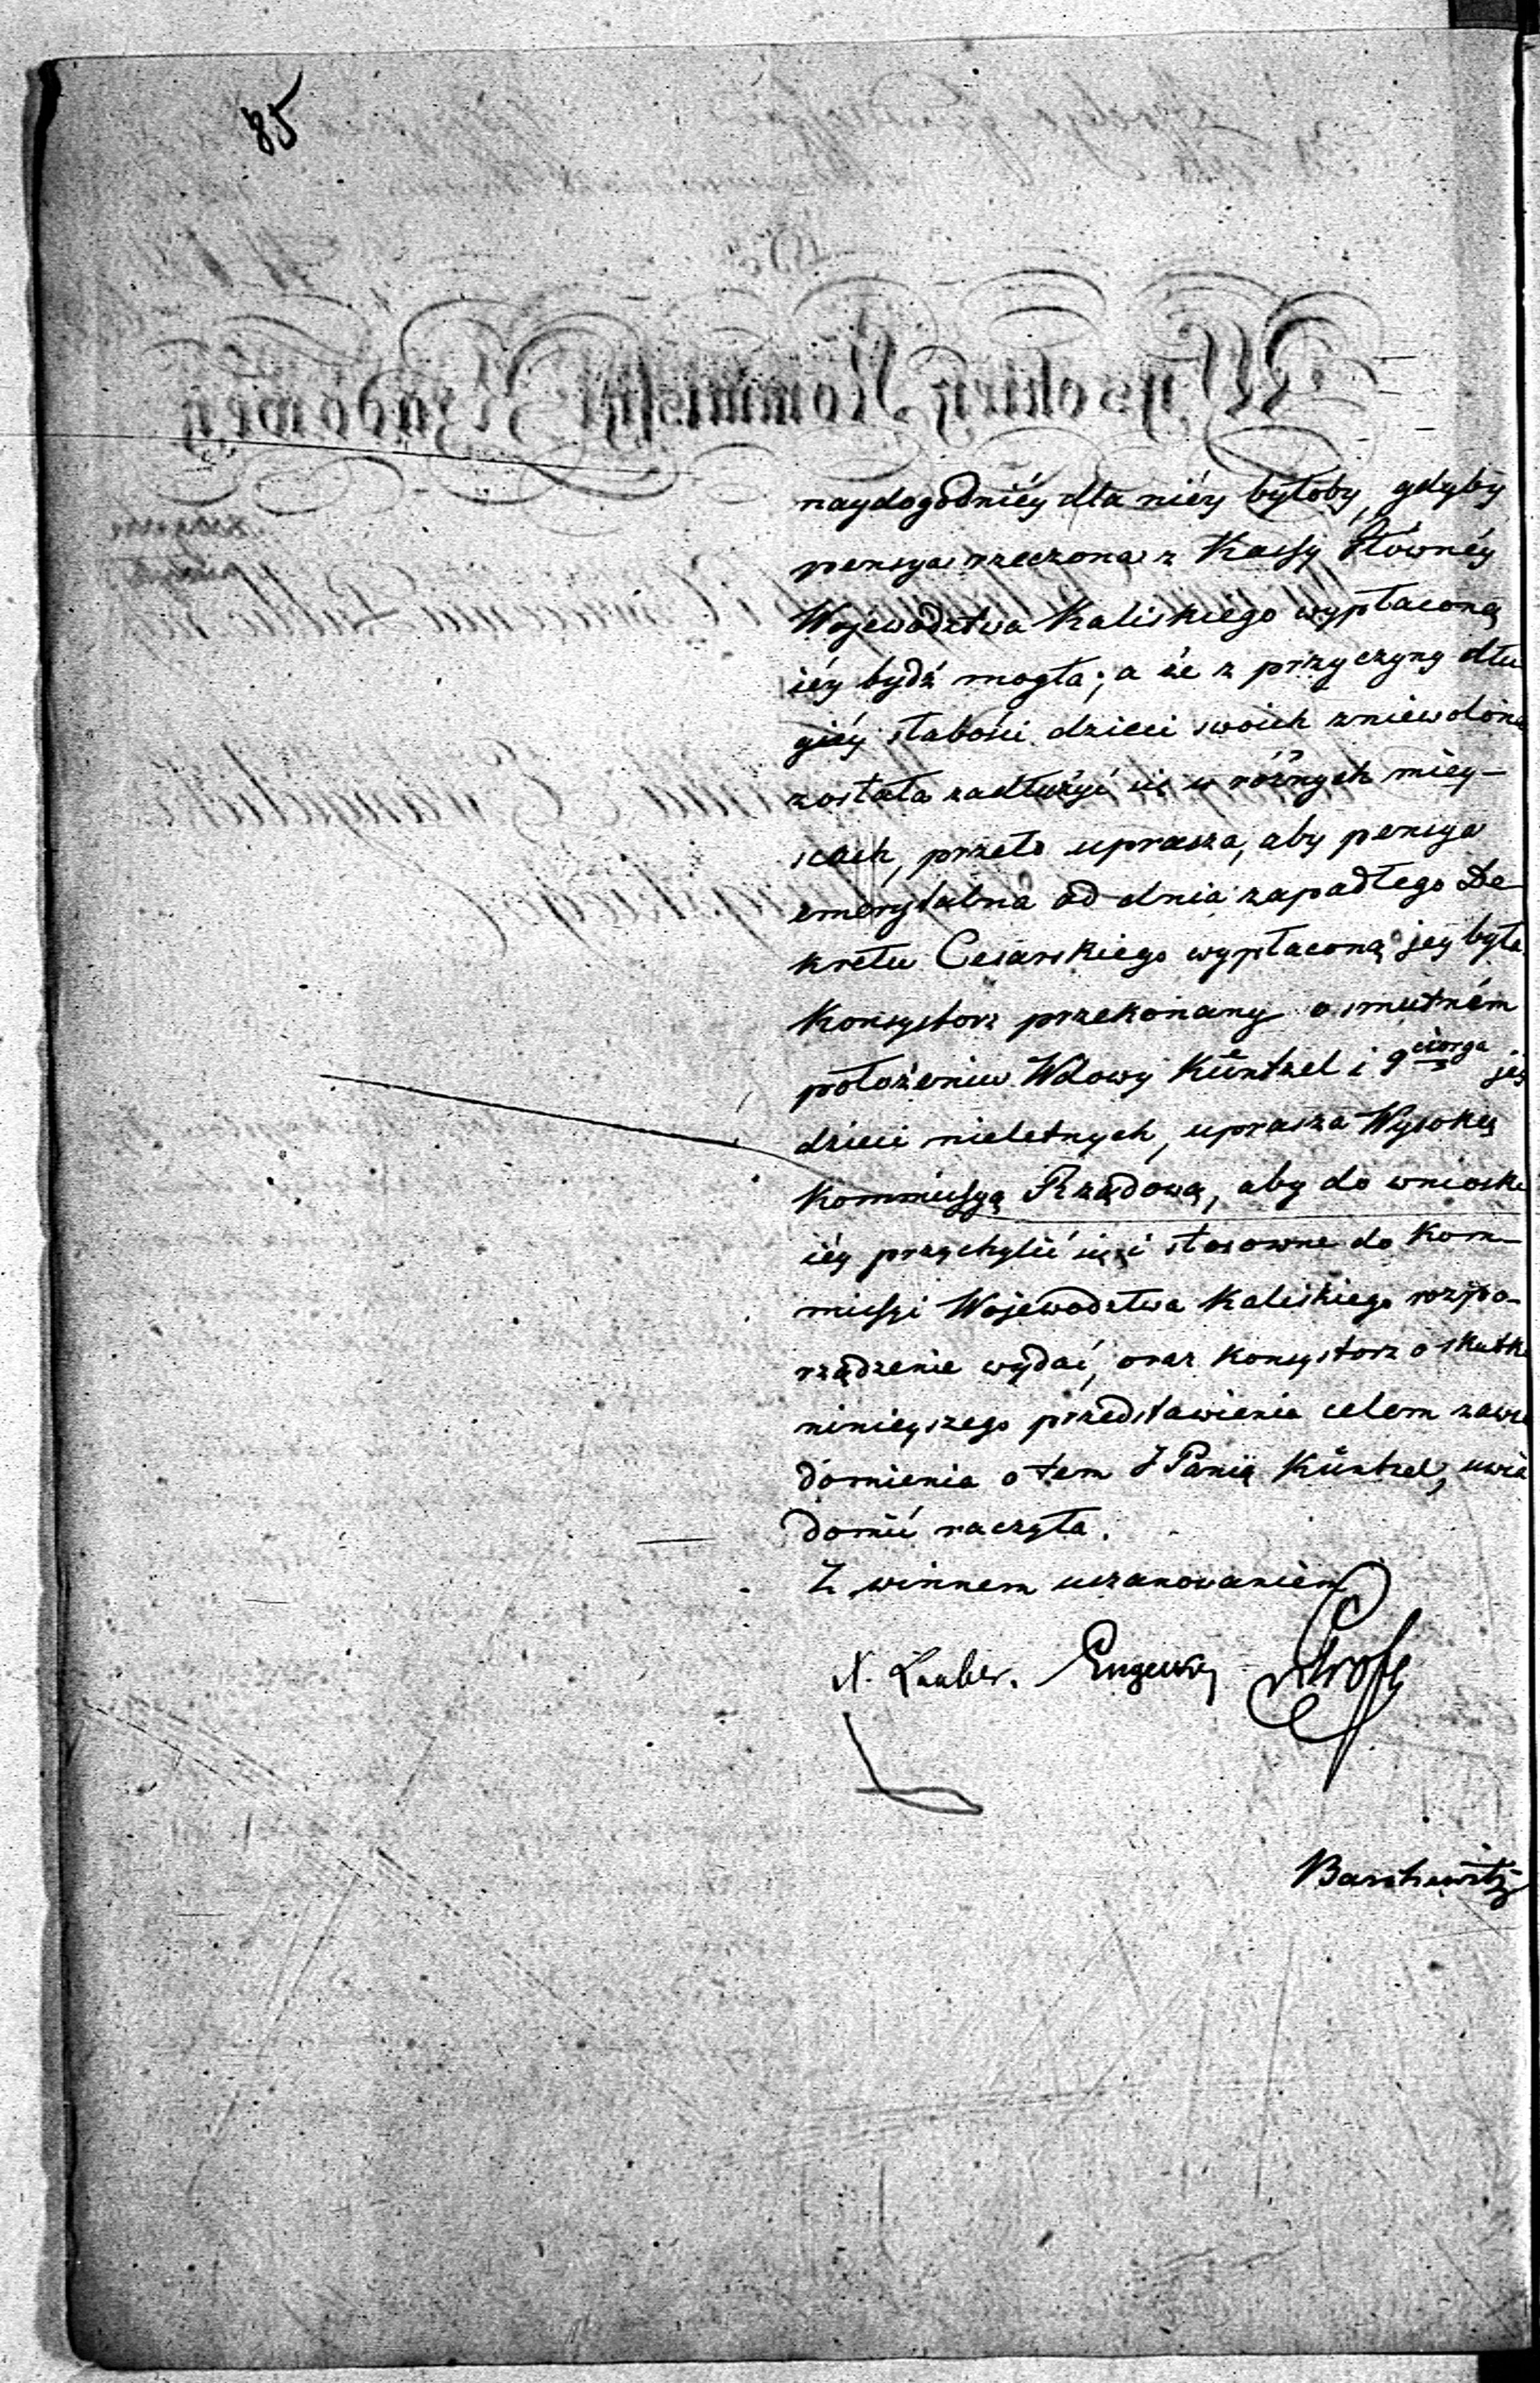 85
naydogodniéy dla niéy byłoby, gdyby
pensya rzeczona z Kassy Główney
Wojewodztwa Kaliskiego wypłaconą
iéy bydź mogła; a że z przyczyny dłu
giéy słabości dzieci swoich zniewoloną
została zadłużyć się w różnych miey-
scach, przeto uprasza, aby pensya
emerytalna od dnia zapadłego De
kretu Cesarskiego wypłaconą jey była.
Konsystorz przekonany o smutném
położeniu Wdowy Küntzel i 9ciorga jey
dzieci nieletnych, uprasza Wysoką
Kommissyą Rządową, aby do wniosku
iéy przychylić się i stosowne do Kom-
missyi Wojewodztwa Kaliskiego rozpo-
rządzenie wydać, oraz Konsystorz o skutku
ninieyszego przedstawienia celem zawia
domienia o tem JPanią Küntzel, uwia
domić raczyła.
Z winnem uszanowaniem
Lauber.